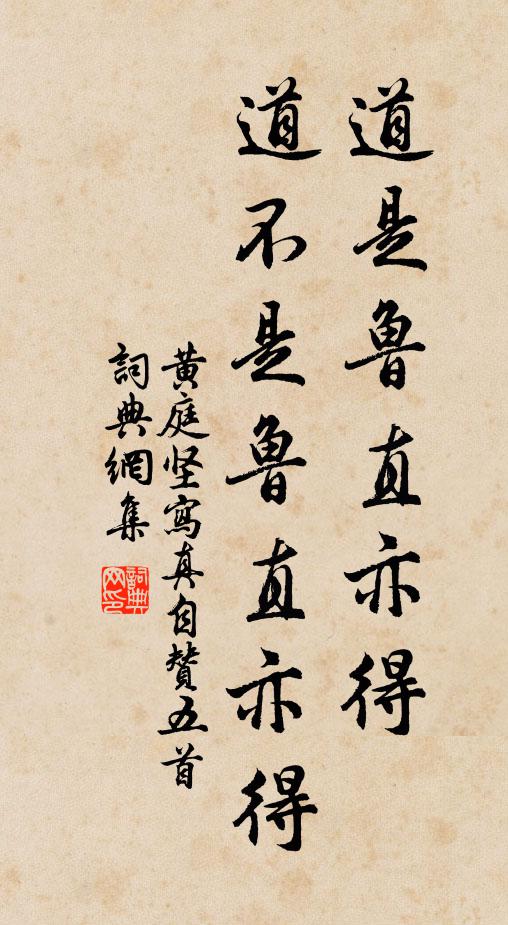 道是魯直亦得
道不是魯直亦得
黄庭坚寫真自贊五首
詞典網集
詞典网印